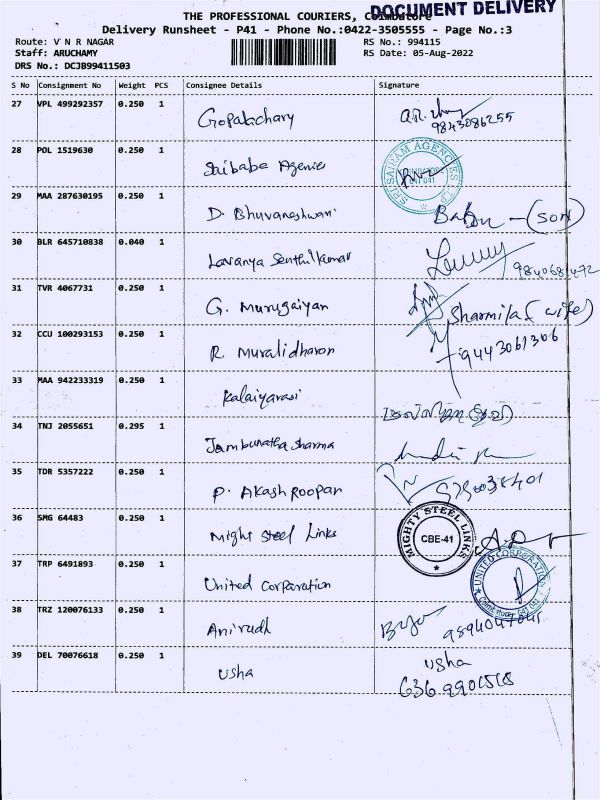 DOCUMENT DELIVERY
THE PROFESSIONAL COURIERS, Coimbatore
Delivery Runsheet - P41 - Phone No.:0422-3505555 - Page No.:3
Route: V N R NAGAR
RS No.: 994115
Staff: ARUCHAMY
RS Date: 05-Aug-2022
DRS No.: DCJB99411503
S No Consignment No Weight PCS Consignee Details Signature
27 VPL 499292357 0.250 1 Gopalachary
9843086255
28 POL 1519630 0.250 1 Saibaba Agenies
SRI SAIRAM AGENCIES
29 MAA 287630195 0.250 1 D. Bhuvaneshwari
Babu - (son)
30 BLR 645710838 0.040 1 Lavanya Senthilkumar
9840681472
31 TVR 4067731 0.250 1 G. Murugaiyan
Sharmila (wife)
32 CCU 100293153 0.250 1 R. Muralidharan
9443061306
33 MAA 942233319 0.250 1 Kalaiyarasi
34 TNJ 2055651 0.295 1 Jambunatha Sharma
35 TDR 5357222 0.250 1 P. Akash Roopan
36 SMG 64483 0.250 1 Might Steel Links
MIGHTY STEEL LINKS
CBE-41
37 TRP 6491893 0.250 1 United Corparation
UNITED CORPORATION
38 TRZ 120076133 0.250 1 Anirudh
39 DEL 70076618 0.250 1 Usha
Usha